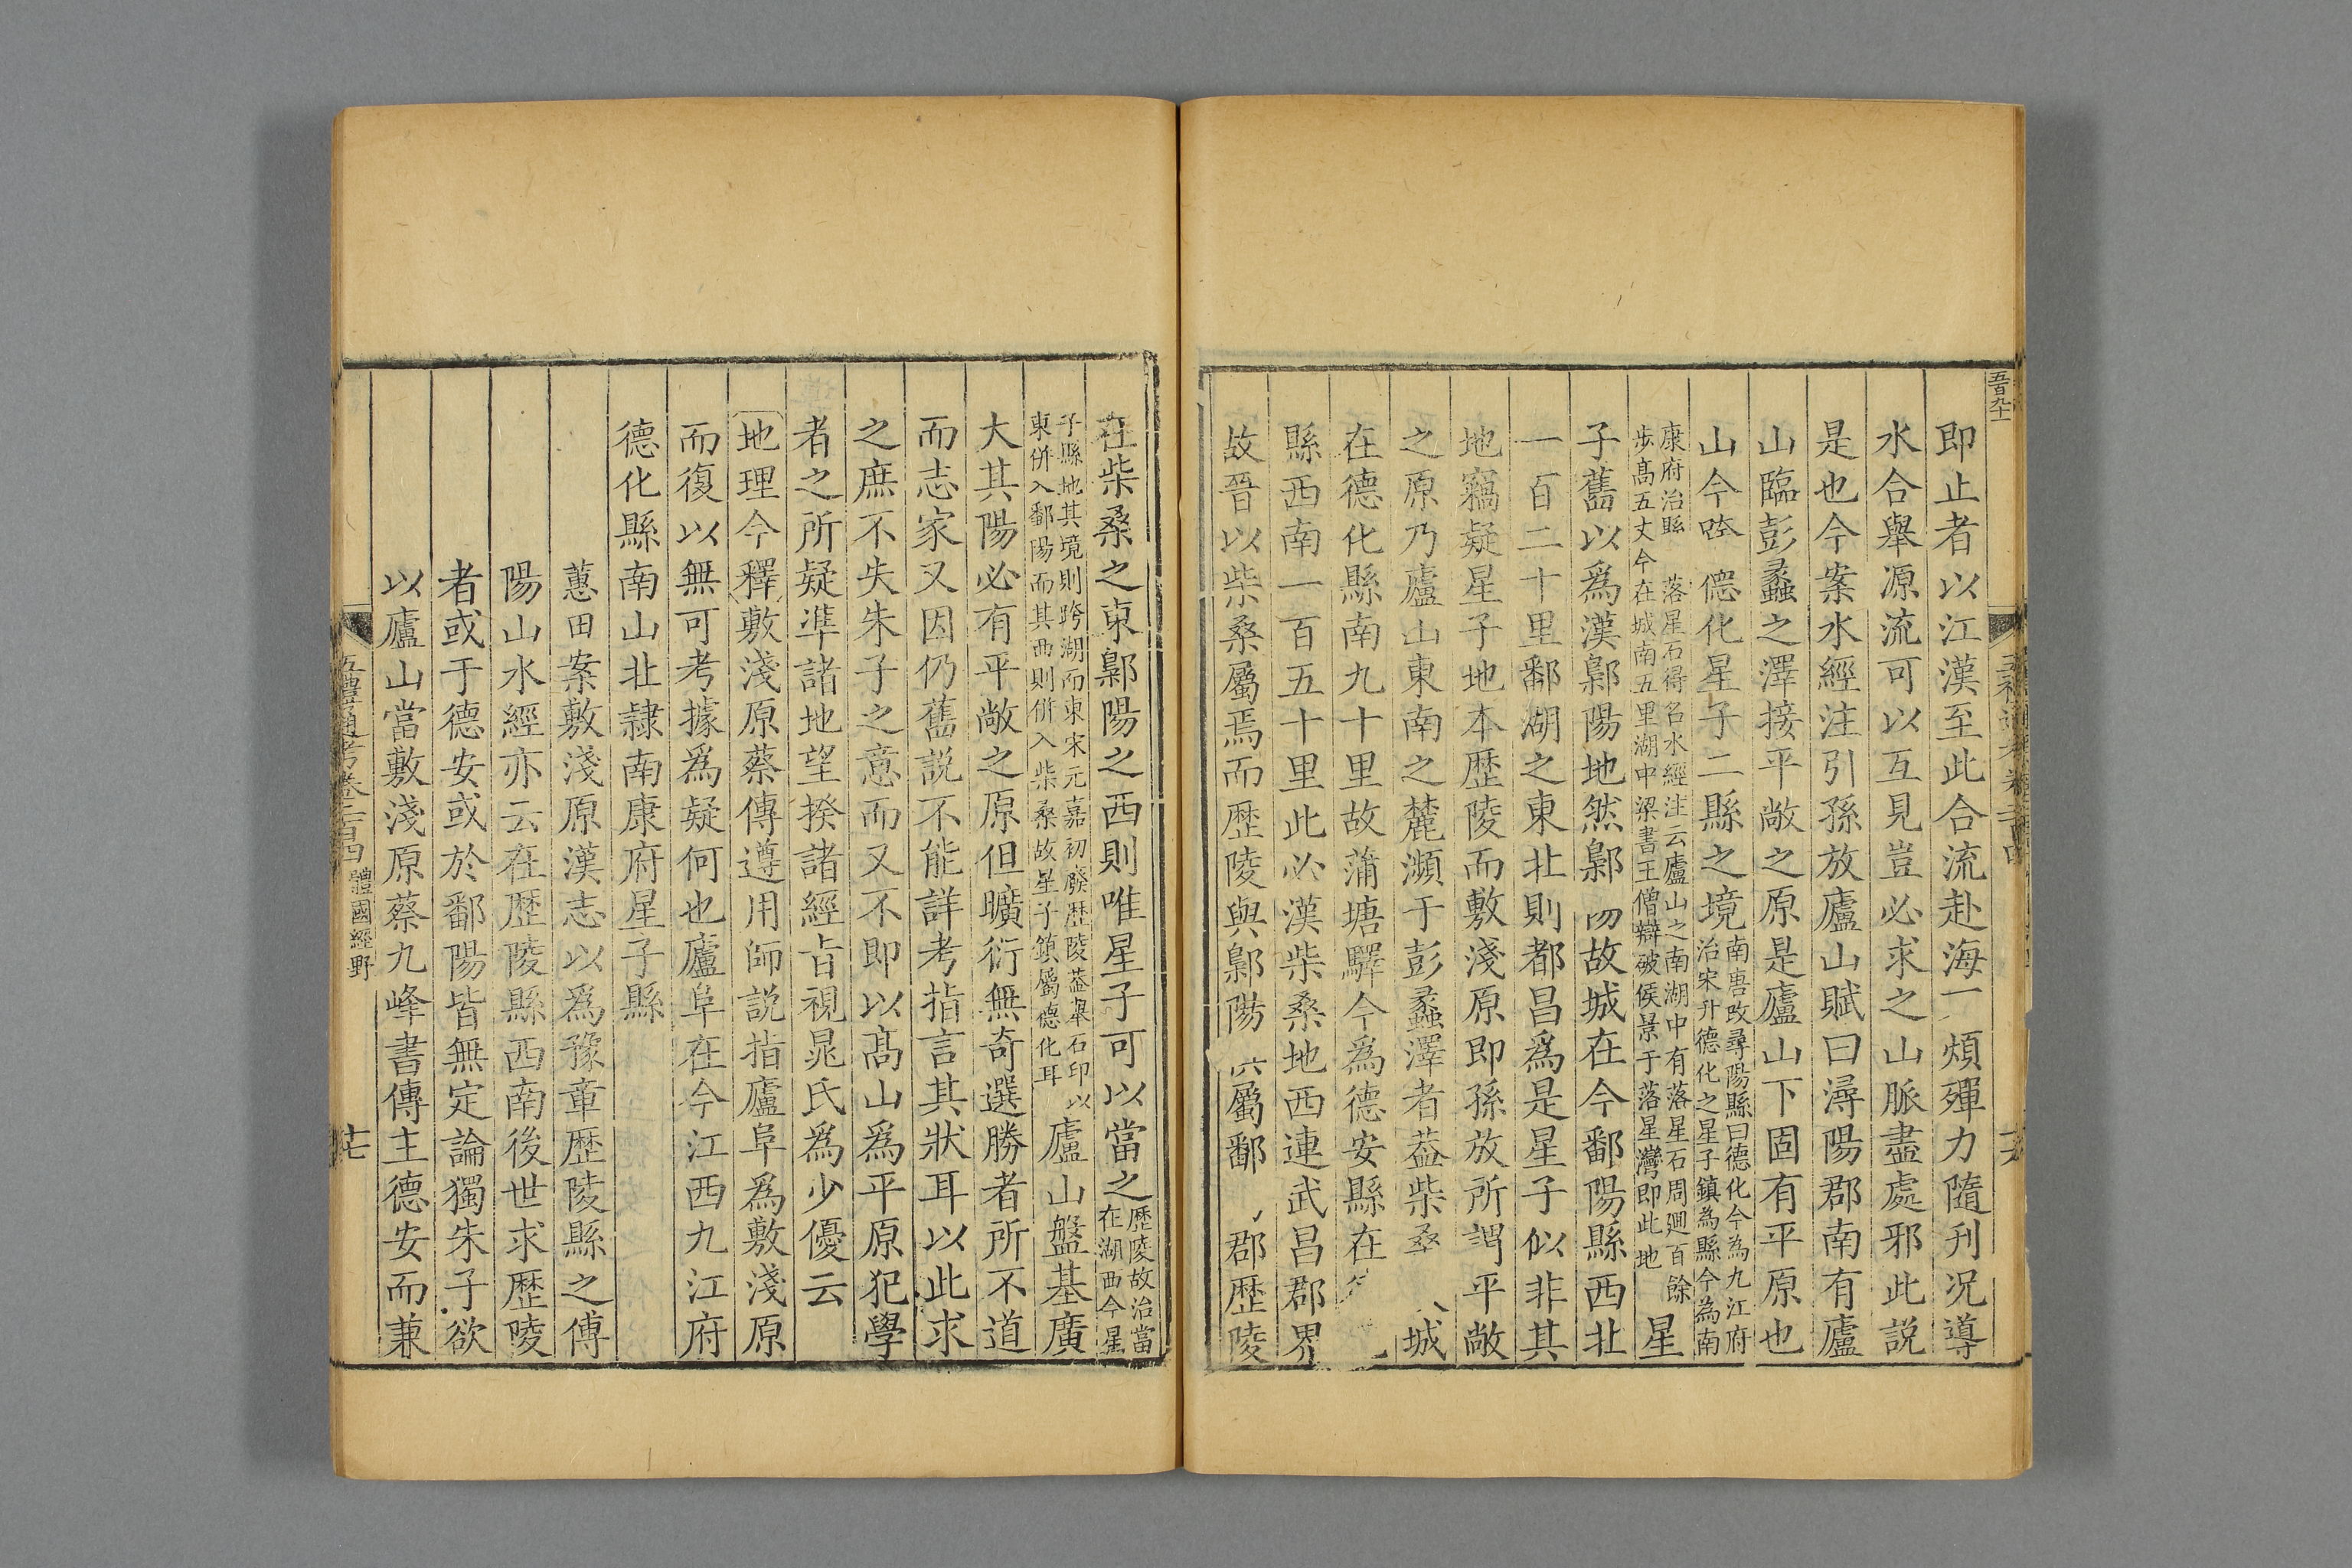 五百九十
即止者以江漢至此合流赴海一煩殫力隨刋况導
水合舉源流可以互見豈必求之山脈盡處邪此説
是也今案水經注引孫放廬山賦曰潯陽郡南有廬
山臨彭蠡之澤接平敞之原是廬山下固有平原也
山今 德化星子二縣之境南唐改尋陽縣曰德化今為九江府
治宋升德化之星子鎮為縣今為南
康府治縣 落星石得名水經注云廬山之南湖中有落星石周迴百餘
步髙五丈今在城南五里湖中梁書王僧辯破侯景于落星灣即此地星
子舊以爲漢鄡陽地然鄡 故城在今鄱陽縣西北
一百二十里鄱湖之東北則都昌爲是星子似非其
地竊疑星子地本歴陵而敷淺原即孫放所謂平敞
之原乃廬山東南之麓瀕于彭蠡澤者葢柴桑 城
在德化縣南九十里故蒲塘驛今爲德安縣在
縣西南一百五十里此必漢柴桑地西連武昌郡界
故晉以柴桑屬焉而歴陵與鄡陽 屬鄱 郡歴陵
在柴桑之東鄡陽之西則唯星子可以當之歴陵故治當
在湖西今星
子縣地其境則跨湖而東宋元嘉初廢歴陵葢舉石印以
東併入鄱陽而其西則併入柴桑故星子鎮屬德化耳廬山盤基廣
大其陽必有平敞之原但曠衍無奇選勝者所不道
而志家又因仍舊説不能詳考指言其狀耳以此求
之庶不失朱子之意而又不即以髙山爲平原犯學
者之所疑準諸地望揆諸經㫖視晁氏爲少優云
地理今釋敷淺原蔡傳遵用師説指廬阜爲敷淺原
而復以無可考據爲疑何也廬阜在今江西九江府
德化縣南山北隸南康府星子縣
蕙田案敷淺原漢志以爲豫章歴陵縣之傅
陽山水經亦云在歴陵縣西南後世求歴陵
者或于德安或於鄱陽皆無定論獨朱子欲
以廬山當敷淺原蔡九峰書傳主德安而兼
五禮通考卷二百四 體國經野